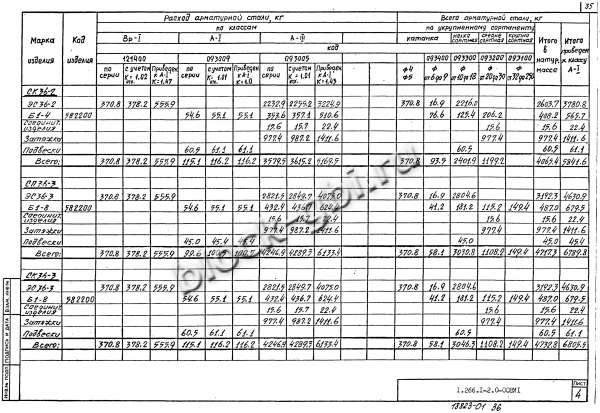 35
Марка изделия
Код изделия
Расход арматурной стали, кг
Всего арматурной стали, кг
по классам
по укрупненному сортаменту
Итого в натур. массе
Итого приведен. к классу А-I
Вр-I
А-I
А-III
катанка
мелко сортная
средне сортная
крупно сортная
код
121400
093009
093005
093400
093300
093200
093100
по серии
с учетом К=1.02 кг.
Приведен. к А-I К=1.47
по серии
с учетом К=1.01 кг.
по серии
с учетом К=1.01 кг.
Приведен. к А-I К=1.43
СК36-2
ЭС36-2 370.8 378.2 555.9 2232.9 2255.2 3224.9 370.8 16.9 2216.0 2603.7 3780.8
Б1-4 582200 54.6 55.1 55.1 353.6 357.1 510.6 76.6 125.4 206.2 408.2 565.7
Соединит. изделия 15.6 15.7 22.4 15.6 15.6 22.4
Затяжки 977.4 987.2 1411.6 977.4 977.4 1411.6
Подвески 60.5 61.1 61.1 60.5 60.5 61.1
Всего: 370.8 378.2 555.9 115.1 116.2 116.2 3579.5 3615.2 5169.5 370.8 93.5 2401.9 1199.2 4065.4 5841.6
СП36-3
ЭС36-3 370.8 378.2 555.9 2821.5 2849.7 4075.0 370.8 16.9 2804.6 3192.3 4630.9
Б1-8 582200 54.6 55.1 55.1 432.4 436.7 624.4 41.2 181.2 115.2 149.4 487.0 679.5
Соединит. изделия 15.6 15.7 22.4 15.6 15.6 22.4
Затяжки 977.4 987.2 1411.6 977.4 977.4 1411.6
Подвески 45.0 45.4 45.4 45.0 45.0 45.4
Всего: 370.8 378.2 555.9 99.6 4246.9 4289.3 6133.4 370.8 58.1 3030.8 1108.2 149.4 4717.3 6789.8
СК36-3
ЭС36-3 370.8 378.2 555.9 2821.5 2849.7 4075.0 370.8 16.9 2804.6 3192.3 4630.9
Б1-8 582200 54.6 55.1 55.1 432.4 436.7 624.4 41.2 181.2 115.2 149.4 487.0 679.5
Соединит. изделия 15.6 15.7 22.4 15.6 15.6 22.4
Затяжки 977.4 987.2 1411.6 977.4 977.4 1411.6
Подвески 60.5 61.1 61.1 60.5 60.5 61.1
Всего: 370.8 378.2 555.9 115.1 116.2 116.2 4246.9 4289.3 6133.4 370.8 58.1 3046.3 1108.2 149.4 4732.8 6805.5
block-zhbi.ru
1.266.1-2.0-00ВМ1
Лист
4
13823-01 36